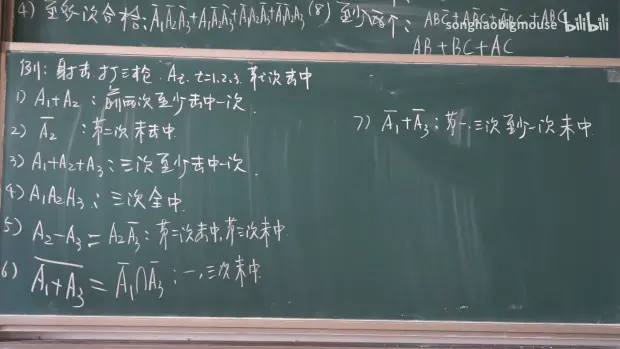 4) 至多一次合格: A̅₁A̅₂A̅₃+A₁A̅₂A̅₃+A̅₁A₂A̅₃+A̅₁A̅₂A₃ (8) 至少两个:
songhaobigmouse bilibili
AB+BC+AC
例: 射击.打三枪. Aᵢ. i=1.2.3. 第i次击中
1) A₁+A₂: 前两次至少击中一次.
2) A̅₂: 第二次未击中.
3) A₁+A₂+A₃: 三次至少击中一次.
4) A₁A₂A₃: 三次全中.
5) A₂-A₃=A₂A̅₃: 第二次击中,第三次未中.
6) \overline{A₁+A₃}=A̅₁∩A̅₃: 一,三次未中.
7) A̅₁+A̅₃: 第一.三次至少一次未中.